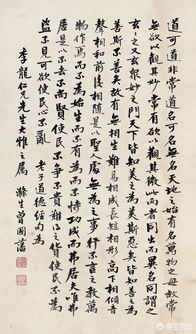 道可道非常道名可名無名天地之始有名萬物之母故常
無欲以觀其妙常有欲以觀其徼此兩者同出而異名同謂之
玄之又玄眾妙之門天下皆知美之為美斯惡矣皆知善之為
善斯不善矣故有無相生難易相成長短相形高下相傾音
聲相和前後相隨是以聖人處無為之事行不言之教萬
物作焉而不辭生而不有為而不恃功成而弗居夫唯弗
居是以不去不尚賢使民不爭不貴難得之貨使民不為
盜不見可欲使民心不亂 老子道德經句為
李龍仁兄先生大雅之屬 滌生曾國藩